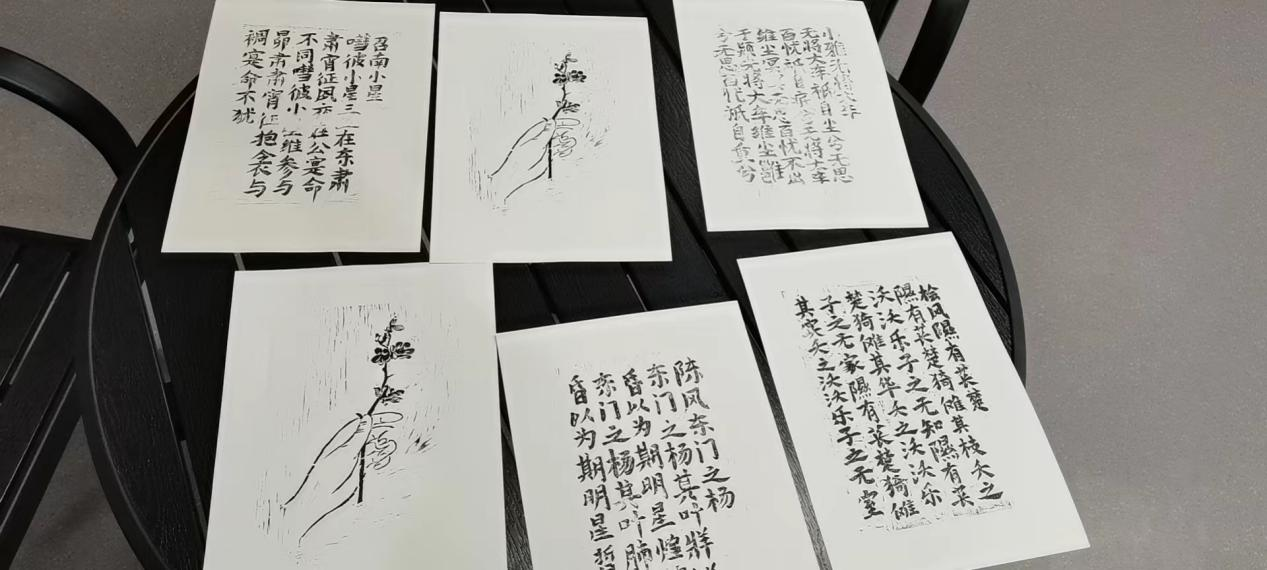 召南小星
嘒彼小星三在东肃
肃宵征夙在公寔命
不同嘒彼小维参与
昴肃肃宵征抱衾与
裯寔命不犹
小雅无将大车
无将大车祇自尘兮无思
百忧祇自疧兮无将大车
维尘冥冥无思百忧不出
于颎无将大车维尘雝
兮无思百忧祇自重兮
陈风东门之杨
东门之杨其叶牂
昏以为期明星煌
东门之杨其叶肺
昏以为期明星晢
桧风隰有苌楚
隰有苌楚猗傩其枝夭之
沃沃乐子之无知隰有苌
楚猗傩其华夭之沃沃乐
子之无家隰有苌楚猗傩
其实夭之沃沃乐子之无室